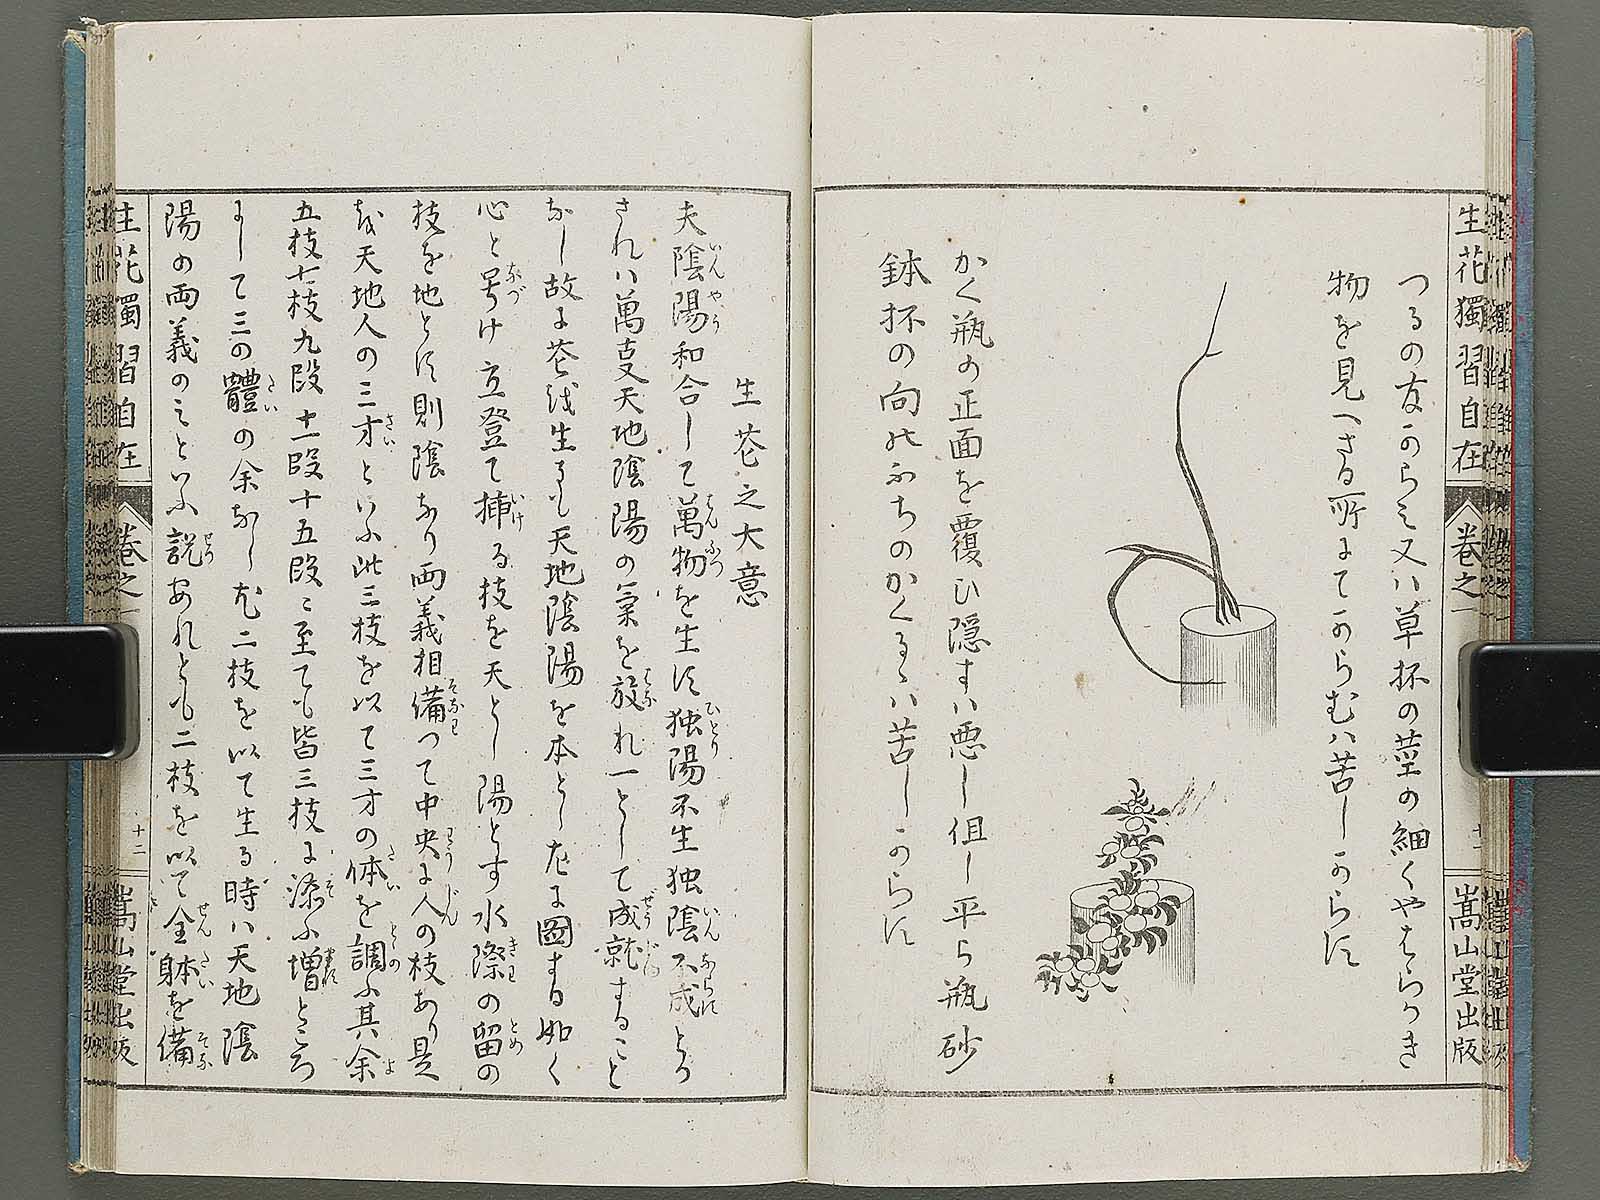 生花獨習自在 卷之一 嵩山堂出版
つるの有からミ又ハ草抔の莖の細くやはらかき
物を見へさる所にてからむハ苦しからす
かく瓶の正面を覆ひ隠すハ悪し但し平ら瓶砂
鉢抔の向のふちのかくるゝハ苦しからす
生花之大意
夫陰陽和合して萬物を生す独陽不生独陰不成とか
されハ萬支天地陰陽の氣を放れ一として成就すること
なし故に花を生るも天地陰陽を本とし左に圖する如く
心と号け立登て挿る枝を天とし陽とす水際の留の
枝を地とす則陰なり両義相備つて中央に人の枝あり是
を天地人の三才といふ此三枝を以て三才の体を調ふ其余
五枝七枝九段十一段十五段に至ても皆三枝に添ふ増ところ
にして三の體の余なし尤二枝を以て生る時ハ天地陰
陽の両義のミといふ説あれとも二枝を以て全体を備
生花獨習自在 卷之一 十二 嵩山堂出版